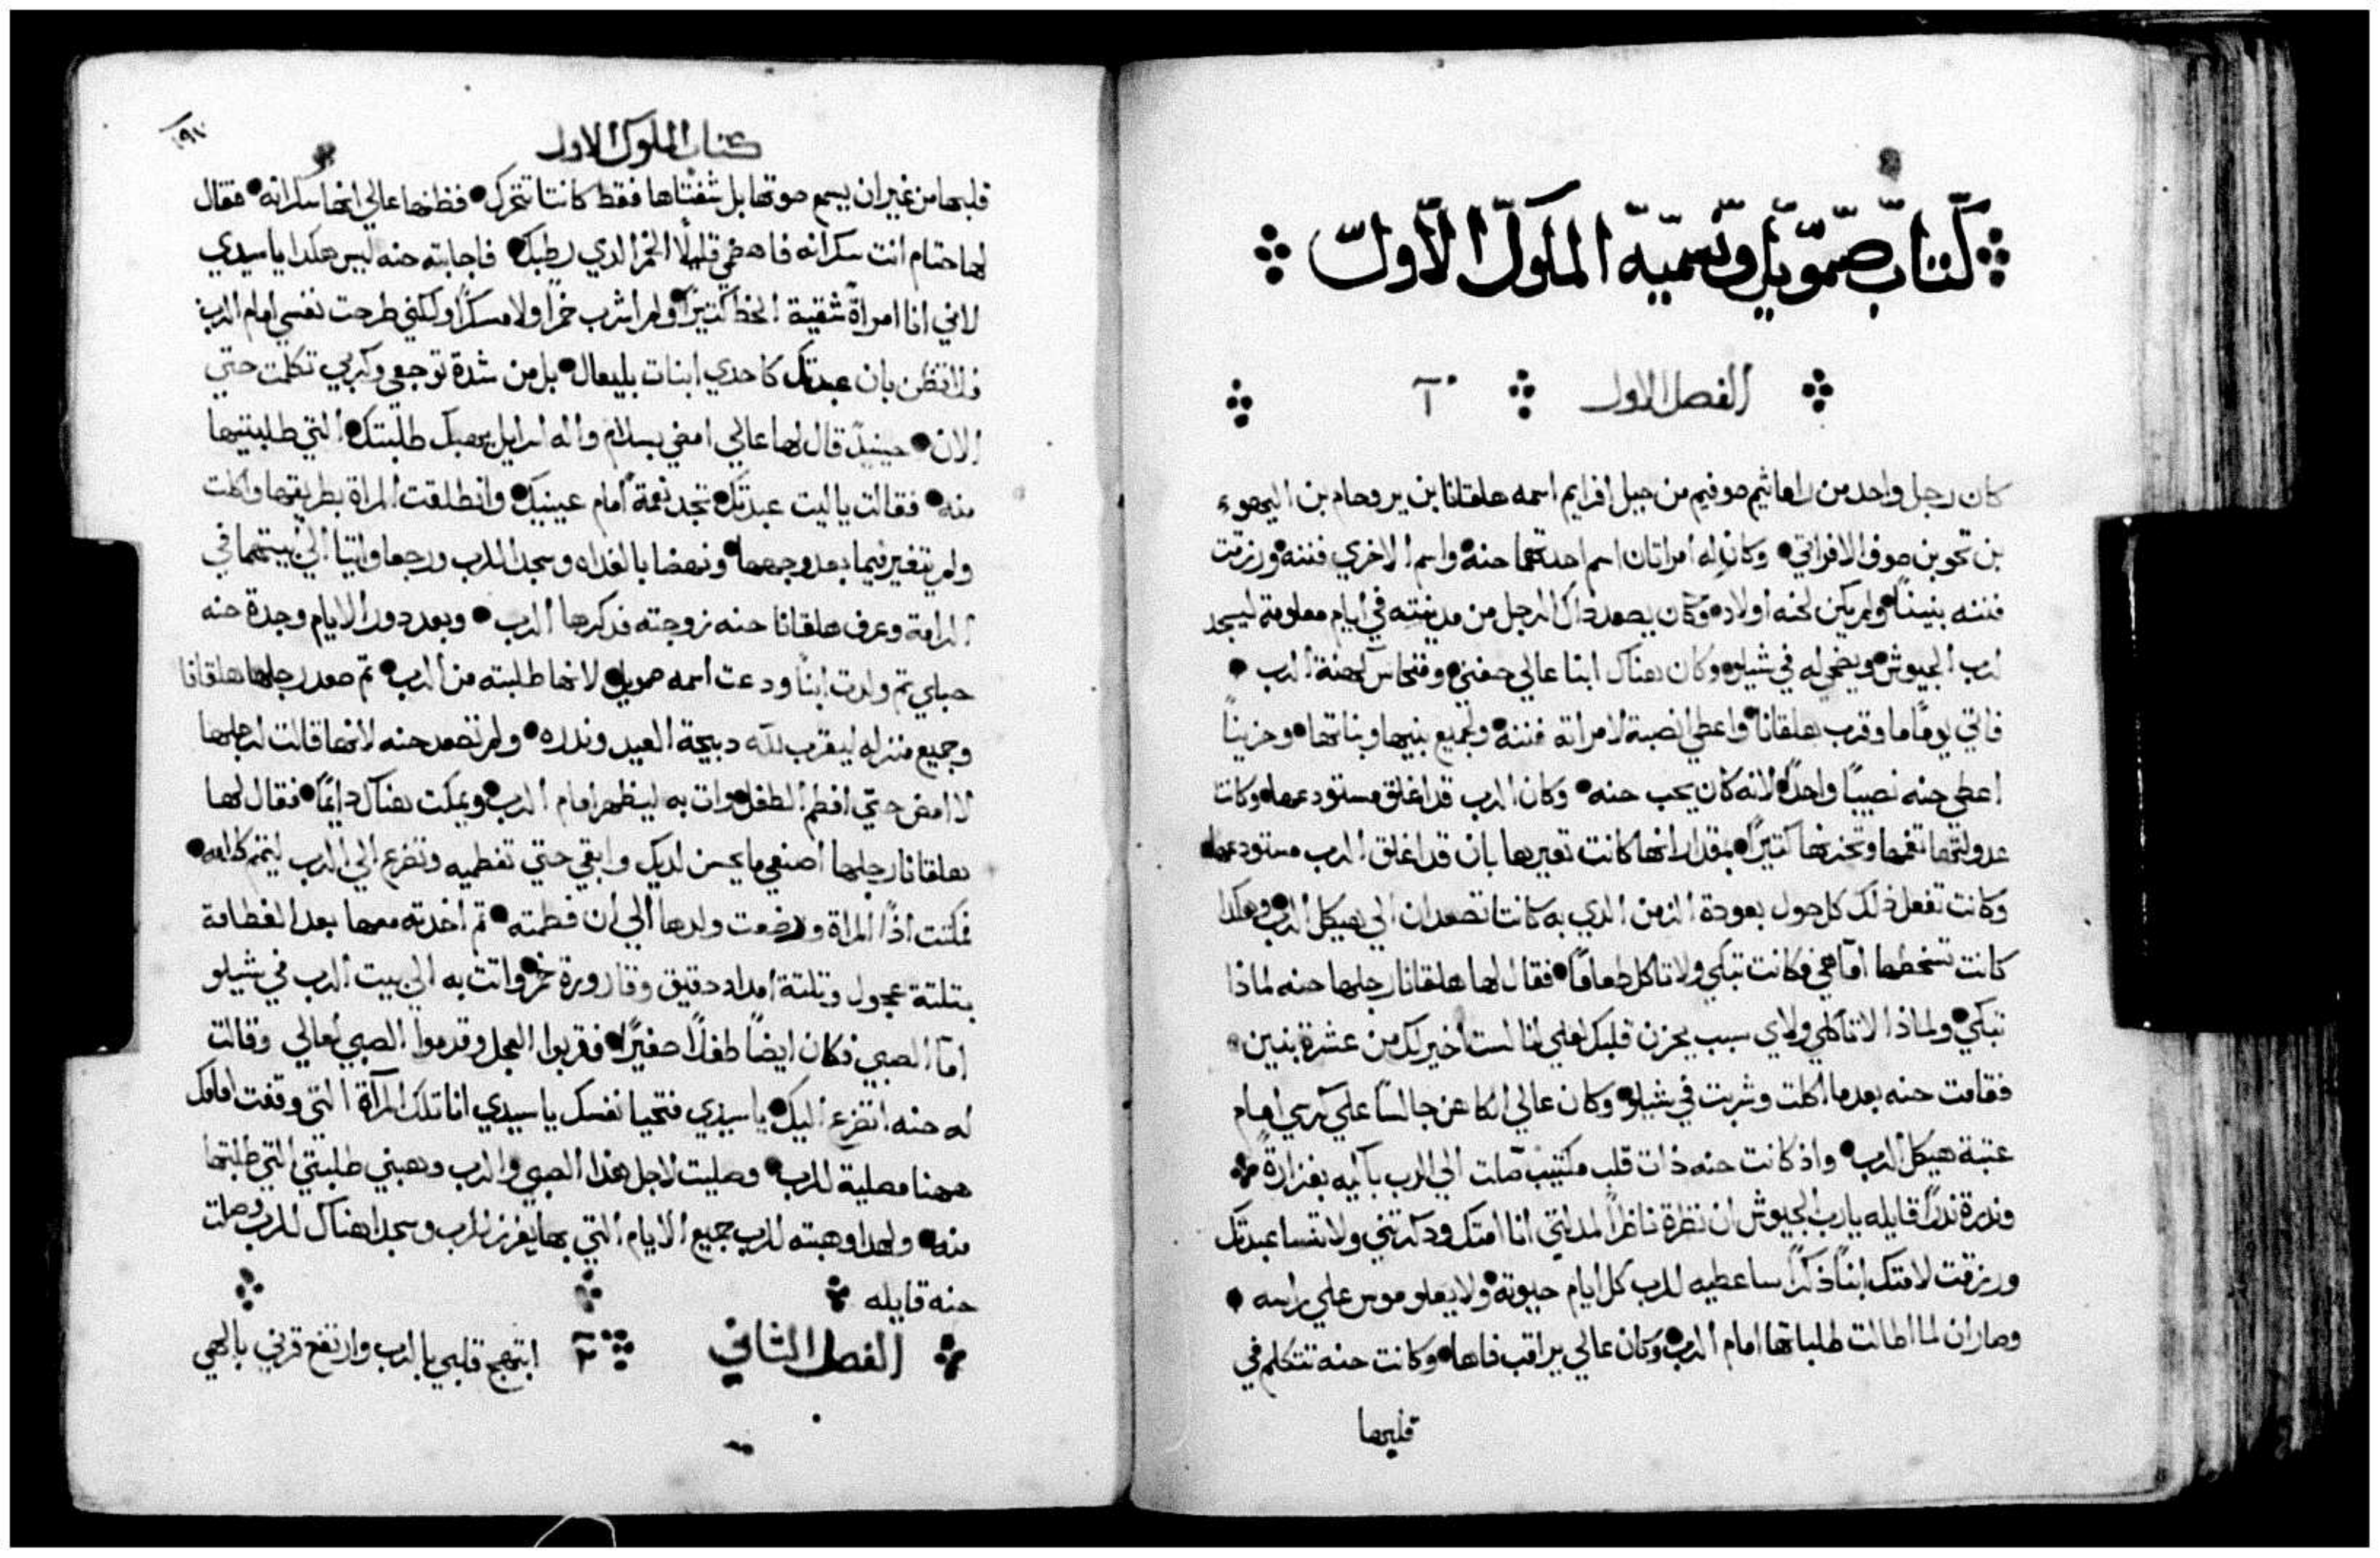 كتاب صموييل وتسمية الملوك الاول
الفصل الاول آ
كان رجل واحد من راماثيم صوفيم من جبل افرايم اسمه هلقانا بن يروحام بن اليهوء
بن تحو بن صوف الافراتي وكان له امراتان اسم احدتهما حنه واسم الاخري فننه ورزقت
فننه بنينًا ولم يكن لحنه اولاد وكان يصعد داك الرجل من مدينته في ايام معلومة ليسجد
لرب الجيوش ويضحي له في شيلو وكان هناك ابنا عالي حفني وفنحاس كهنة الرب
فاتي يومًا ما وقرب هلقانا واعطي انصبة لامراته فننه ولجميع بنيها وبناتها وحزينًا
اعطي حنه نصيبًا واحدًا لانه كان يحب حنه وكان الرب قد اغلق مستودعها وكانت
عدولتها تغمها وتحزنها كتيرًا بمقدار انها كانت تعيرها بان قد اغلق الرب مستودعها
وكانت تفعل ذلك كل حول بعودة الزمن الدي به كانتا تصعدان الي هيكل الرب وهكدا
كانت تسخطها امّا هي فكانت تبكي ولا تاكل طعامًا فقال لها هلقانا رجلها حنه لماذا
تبكي ولماذا لا تاكلي ولاي سبب يحزن قلبك لعلي انا لست اخير لك من عشرة بنين
فقامت حنه بعدما اكلت وشربت في شيلو وكان عالي الكاهن جالسًا علي كرسي امام
عتبة هيكل الرب واذ كانت حنه ذات قلب مكتيب صلت الي الرب باكيه بغزارةً
ونذرة نذرًا قايله يا رب الجيوش ان نظرة ناظرًا لمدلتي انا امتك ودكرتني ولا تنسا عبدتك
ورزقت لامتك ابنًا ذكرًا ساعطيه للرب كل ايام حيوته ولا يعلو موس علي راسه
وصار ان لما اطالت طلباتها امام الرب وكان عالي يراقب فاها وكانت حنه تتكلم في
قلبها
كتاب الملوك الاول
قلبها من غير ان يسمع صوتها بل شفتاها فقط كانتا تتحرك فظنها عالي انها سكرانه فقال
لها حتام انت سكرانه فاهضمي قليلًا الخمر الدي رطبك فاجابته حنه ليس هكدا يا سيدي
لاني انا امراة شقية الحظ كتيرًا ولم اشرب خمرًا ولا مسكرًا ولكني طرحت نفسي امام الرب
فلا تظن بان عبدتك كاحدي ابنات بليعال بل من شدة توجعي وكربي تكلمت حتي
الان حينيدٍ قال لها عالي امضي بسلام واله اسرايل يهبك طلبتك التي طلبتيها
منه فقالت يا ليت عبدتك تجد نعمة امام عينيك وانطلقت المراة بطريقها واكلت
ولم يتغير فيما بعد وجهها ونهضا بالغداه وسجدا للرب ورجعا واتيا الي بيتهما في
الرامة وعرف هلقانا حنه زوجته فدكرها الرب وبعد دور الايام وجدة حنه
حبلي تم ولدت ابنًا ودعت اسمه صمويل لانها طلبته من الرب تم صعد رجلها هلقانا
وجميع منزله ليقرب لله دبيحة العيد وندره ولم تصعد حنه لانها قالت لرجلها
لا امض حتي افطم الطفل وات به ليظهر امام الرب ويمكت هناك دايمًا فقال لها
هلقانا رجلها اصنعي ما يحسن لديك وابقي حتي تفطميه وتضرع الي الرب ليتمم كلامه
فمكتت اذًا المراة ورضعت ولدها الي ان فطمته تم اخدته معها بعد الفطامة
بتلتة عجول وبتلتة امداد دقيق وقارورة خمر واتت به الي بيت الرب في شيلو
امّا الصبي فكان ايضًا طفلًا صغيرًا فقربوا العجل وقدموا الصبي لعالي وقالت
له حنه اتضرع اليك يا سيدي فتحيا نفسك يا سيدي انا تلك المرآة التي وقفت امامك
ههنا مصلية للرب وصليت لاجل هذا الصبي والرب وهبني طلبتي التي طلبتها
منه ولهدا وهبته للرب جميع الايام التي بها يفرز للرب وسجدا هناك للرب وصلت
حنه قايله
الفصل الثاني ٢ ابتهج قلبي بالرب وارتفع قرني بالهي